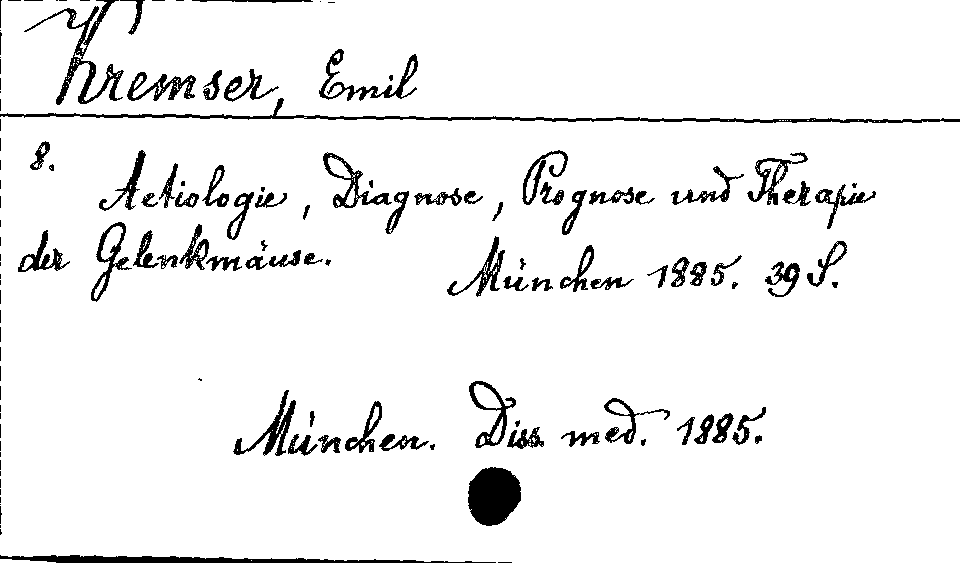 Kremser, Emil
8.
Aetiologie, Diagnose, Prognose und Therapie
der Gelenkmäuse.
München 1885. 39 S.
München. Diss. med. 1885.